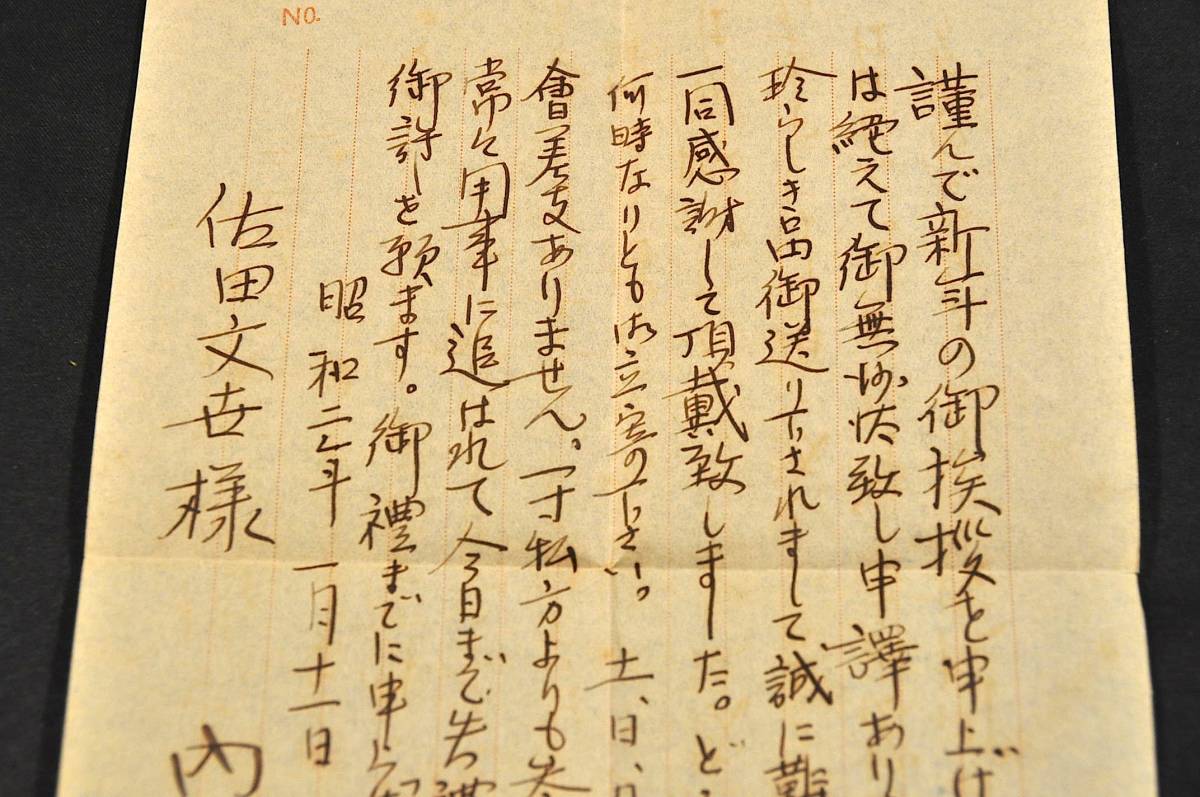 NO.
謹んで新年の御挨拶を申上げ
は絶えて御無沙汰致し申譯あり
珍らしき品御送り下されまして誠に難
一同感謝して頂戴致しました。ど
何時なりとも御立寄り下さい。土、日、
會差支ありません。一寸私方よりも参
常々用事に追はれて今日まで失禮
御許しを願ます。御禮までに申上
昭和二年一月十一日
佐田文吉様
内